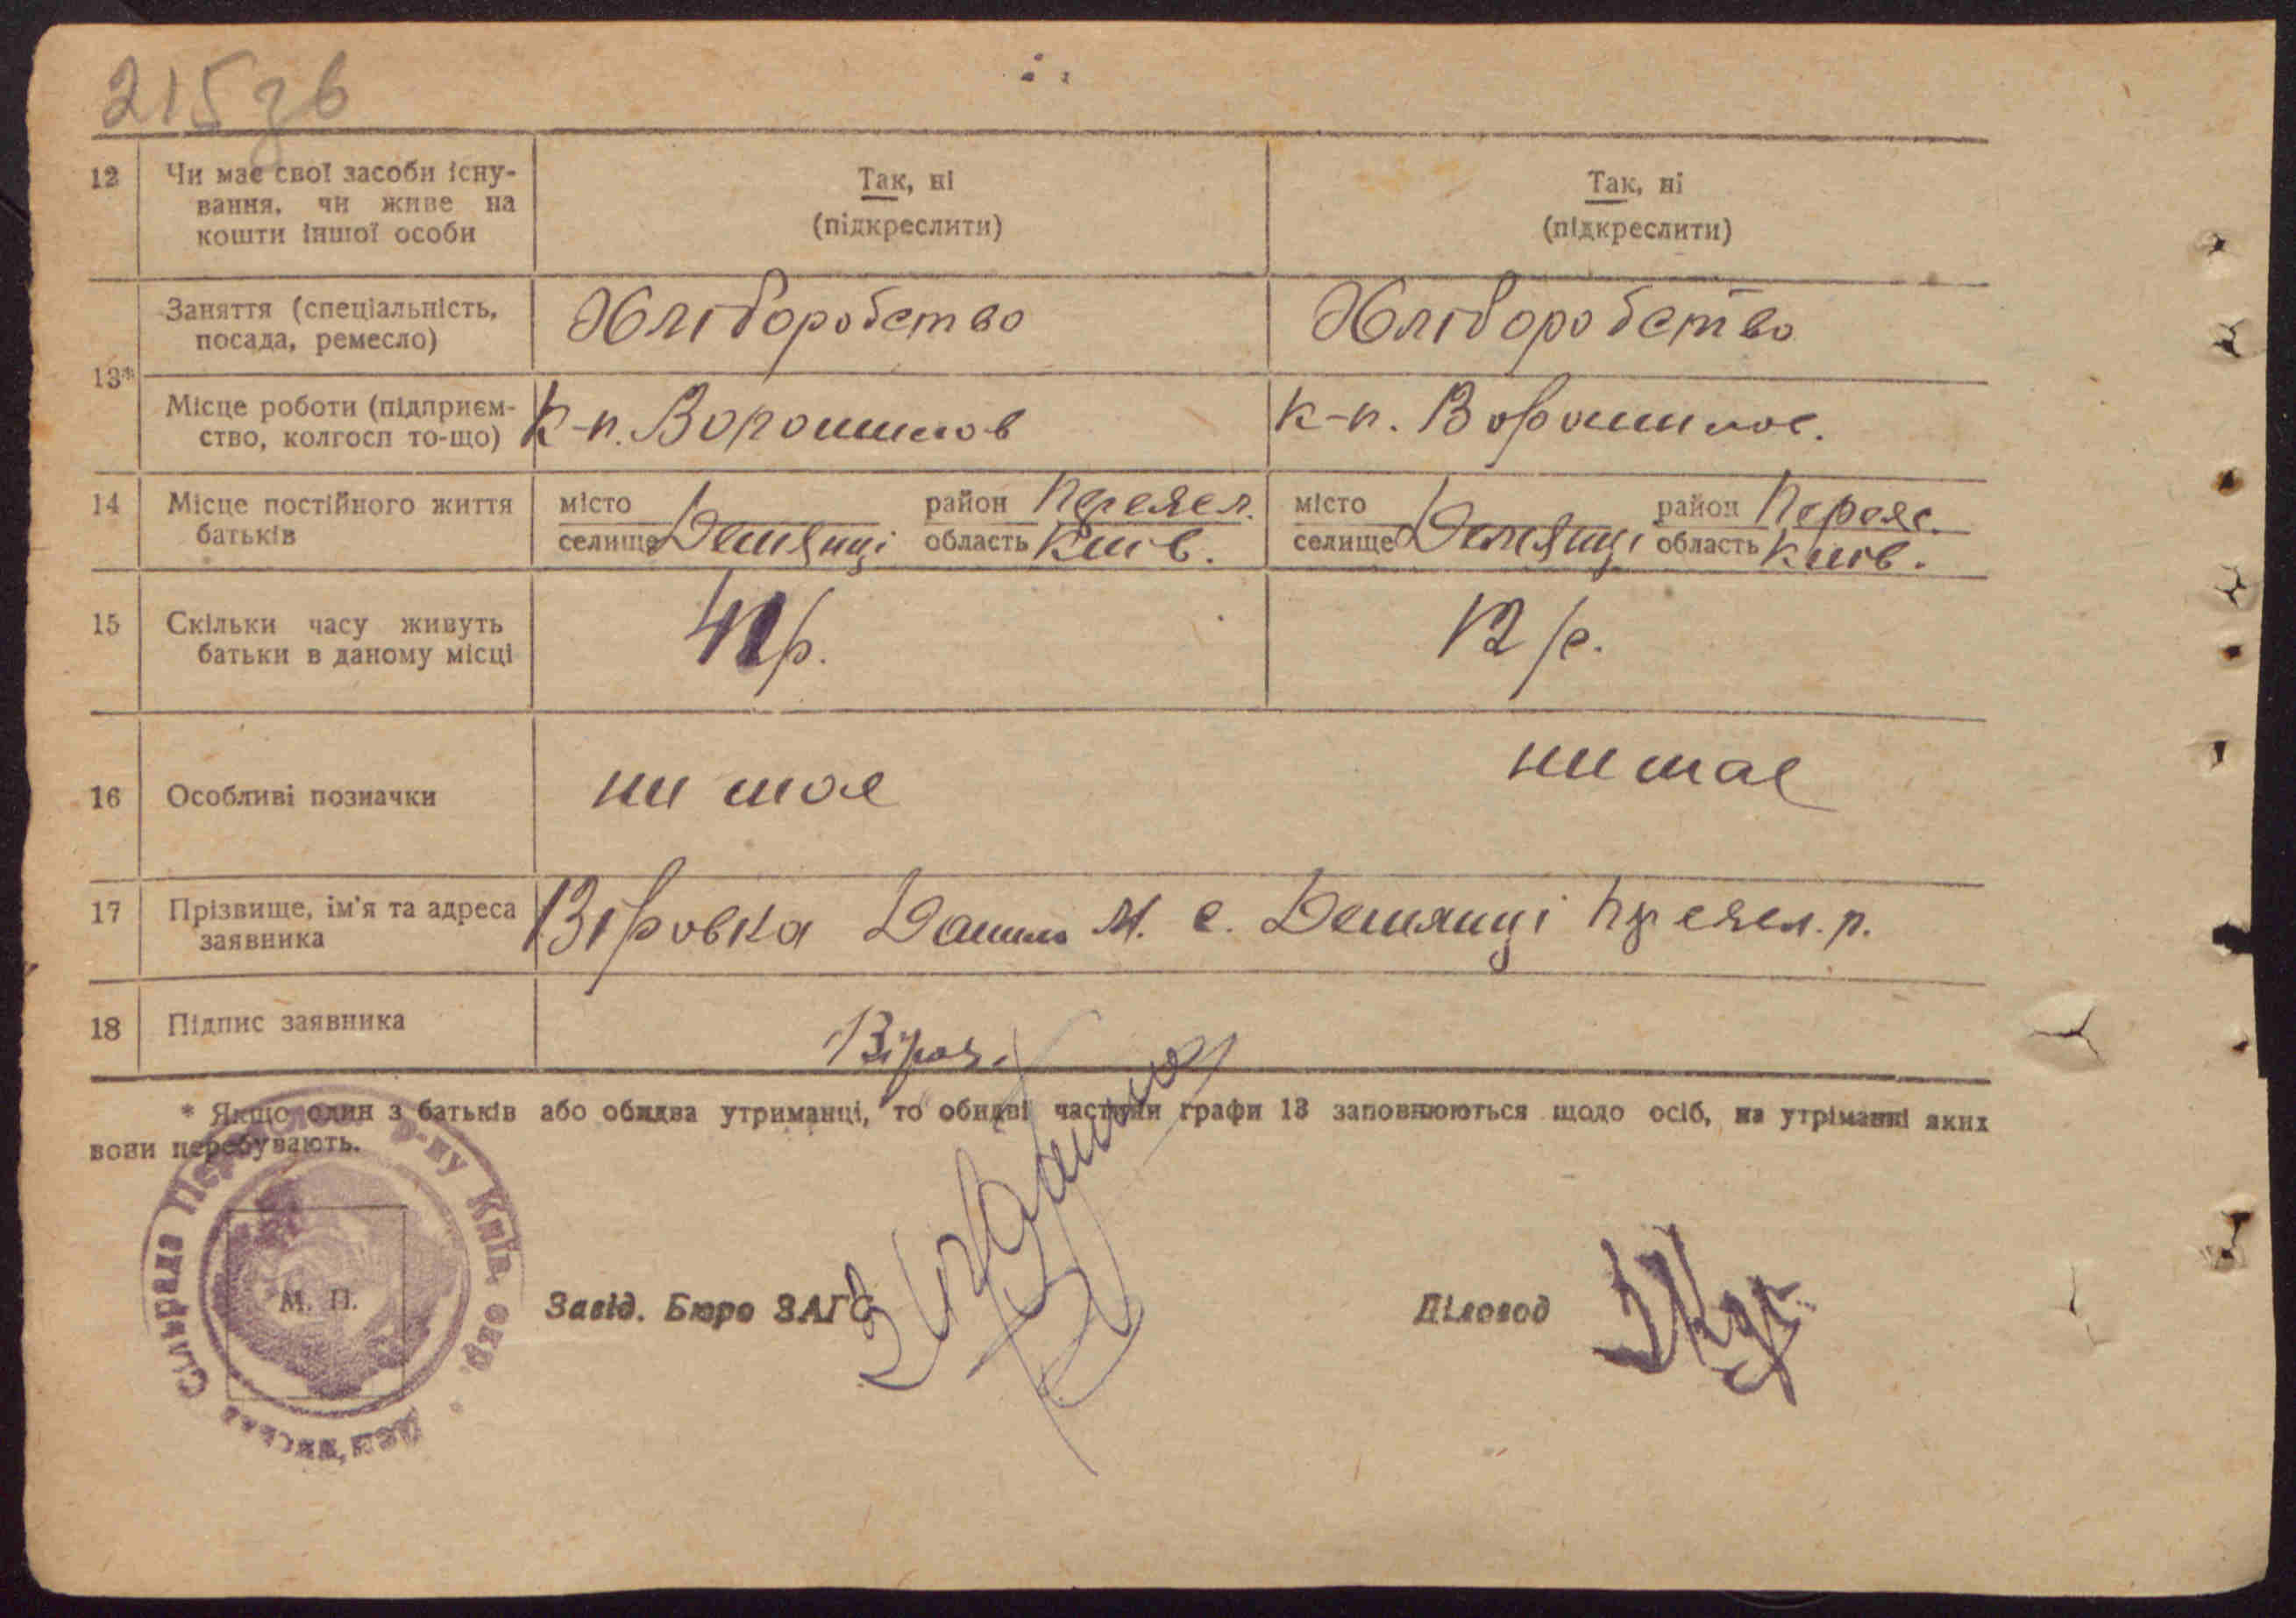 215зв
12 Чи має свої засоби існу- Так, ні Так, ні
вання, чи живе на (підкреслити) (підкреслити)
кошти іншої особи
13* Заняття (спеціальність, Хліборобство Хліборобство
посада, ремесло)
Місце роботи (підприєм- К-п. Ворошилов К-п. Ворошилов.
ство, колгосп то-що)
14 Місце постійного життя місто район Переял. місто район Переяс.
батьків селище Демянці область Київ. селище Демянці область Київ.
15 Скільки часу живуть 41 р. 12 р.
батьки в даному місці
16 Особливі позначки ни має ни має
17 Прізвище, ім'я та адреса Віровка Данило М. с. Демянці Переял. р.
заявника
18 Підпис заявника Віров.
* Якщо один з батьків або обидва утриманці, то обидві частини графи 13 заповнюються щодо осіб, на утріманні яких
вони перебувають.
Сільрада р-ну Київ. окр.
М. П.
Завід. Бюро ЗАГС Діловод